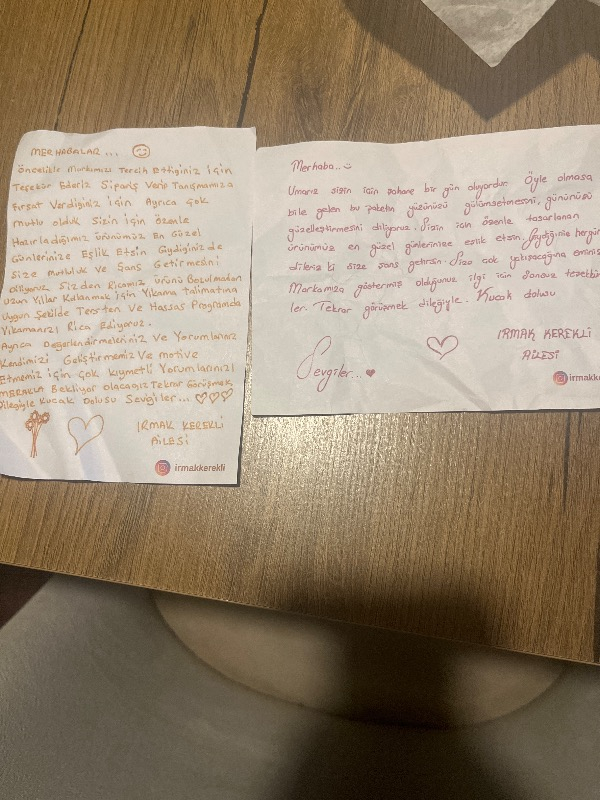 MERHABALAR...
Öncelikle Markamızı Tercih Ettiğiniz için
Teşekür Ederiz Sipariş Verip Tanışmamıza
Fırsat Verdiğiniz için Ayrıca Çok
mutlu olduk Sizin için özenle
Hazırladığımız Ürünümüz En Güzel
Günlerinize Eşlik Etsin Giydiğinizde
Size Mutluluk Ve Şans Getirmesini
Diliyoruz Sizden Ricamız Ürünü Bozulmadan
Uzun Yıllar Kullanmak için Yıkama talimatına
Uygun Şekilde Tersten Ve Hassas Programda
Yıkamanızı Rica Ediyoruz.
Ayrıca Değerlendirmeleriniz Ve Yorumlarınız
Kendimizi Geliştirmemiz Ve motive
Etmemiz için Çok Kıymetli Yorumlarınızı
MERAKLA Bekliyor olacağız Tekrar Görüşmek
Dileğiyle Kucak Dolusu Sevgiler...
IRMAK KEREKLİ
AİLESİ
irmakkerekli
Merhaba..
Umarız sizin için şahane bir gün oluyordur. Öyle olmasa
bile gelen bu paketin yüzünüzü gülümsetmesini, gününüzü
güzelleştirmesini diliyoruz. Sizin için özenle tasarlanan
ürünümüz en güzel günlerinize eşlik etsin. Giydiğiniz hergün
dileriz ki size şans getirsin. Size çok yakışacağına eminiz
Markamıza göstermiş olduğunuz ilgi için sonsuz teşekkür
ler. Tekrar görüşmek dileğiyle. Kucak dolusu
Sevgiler...
IRMAK KEREKLİ
AİLESİ
irmakke